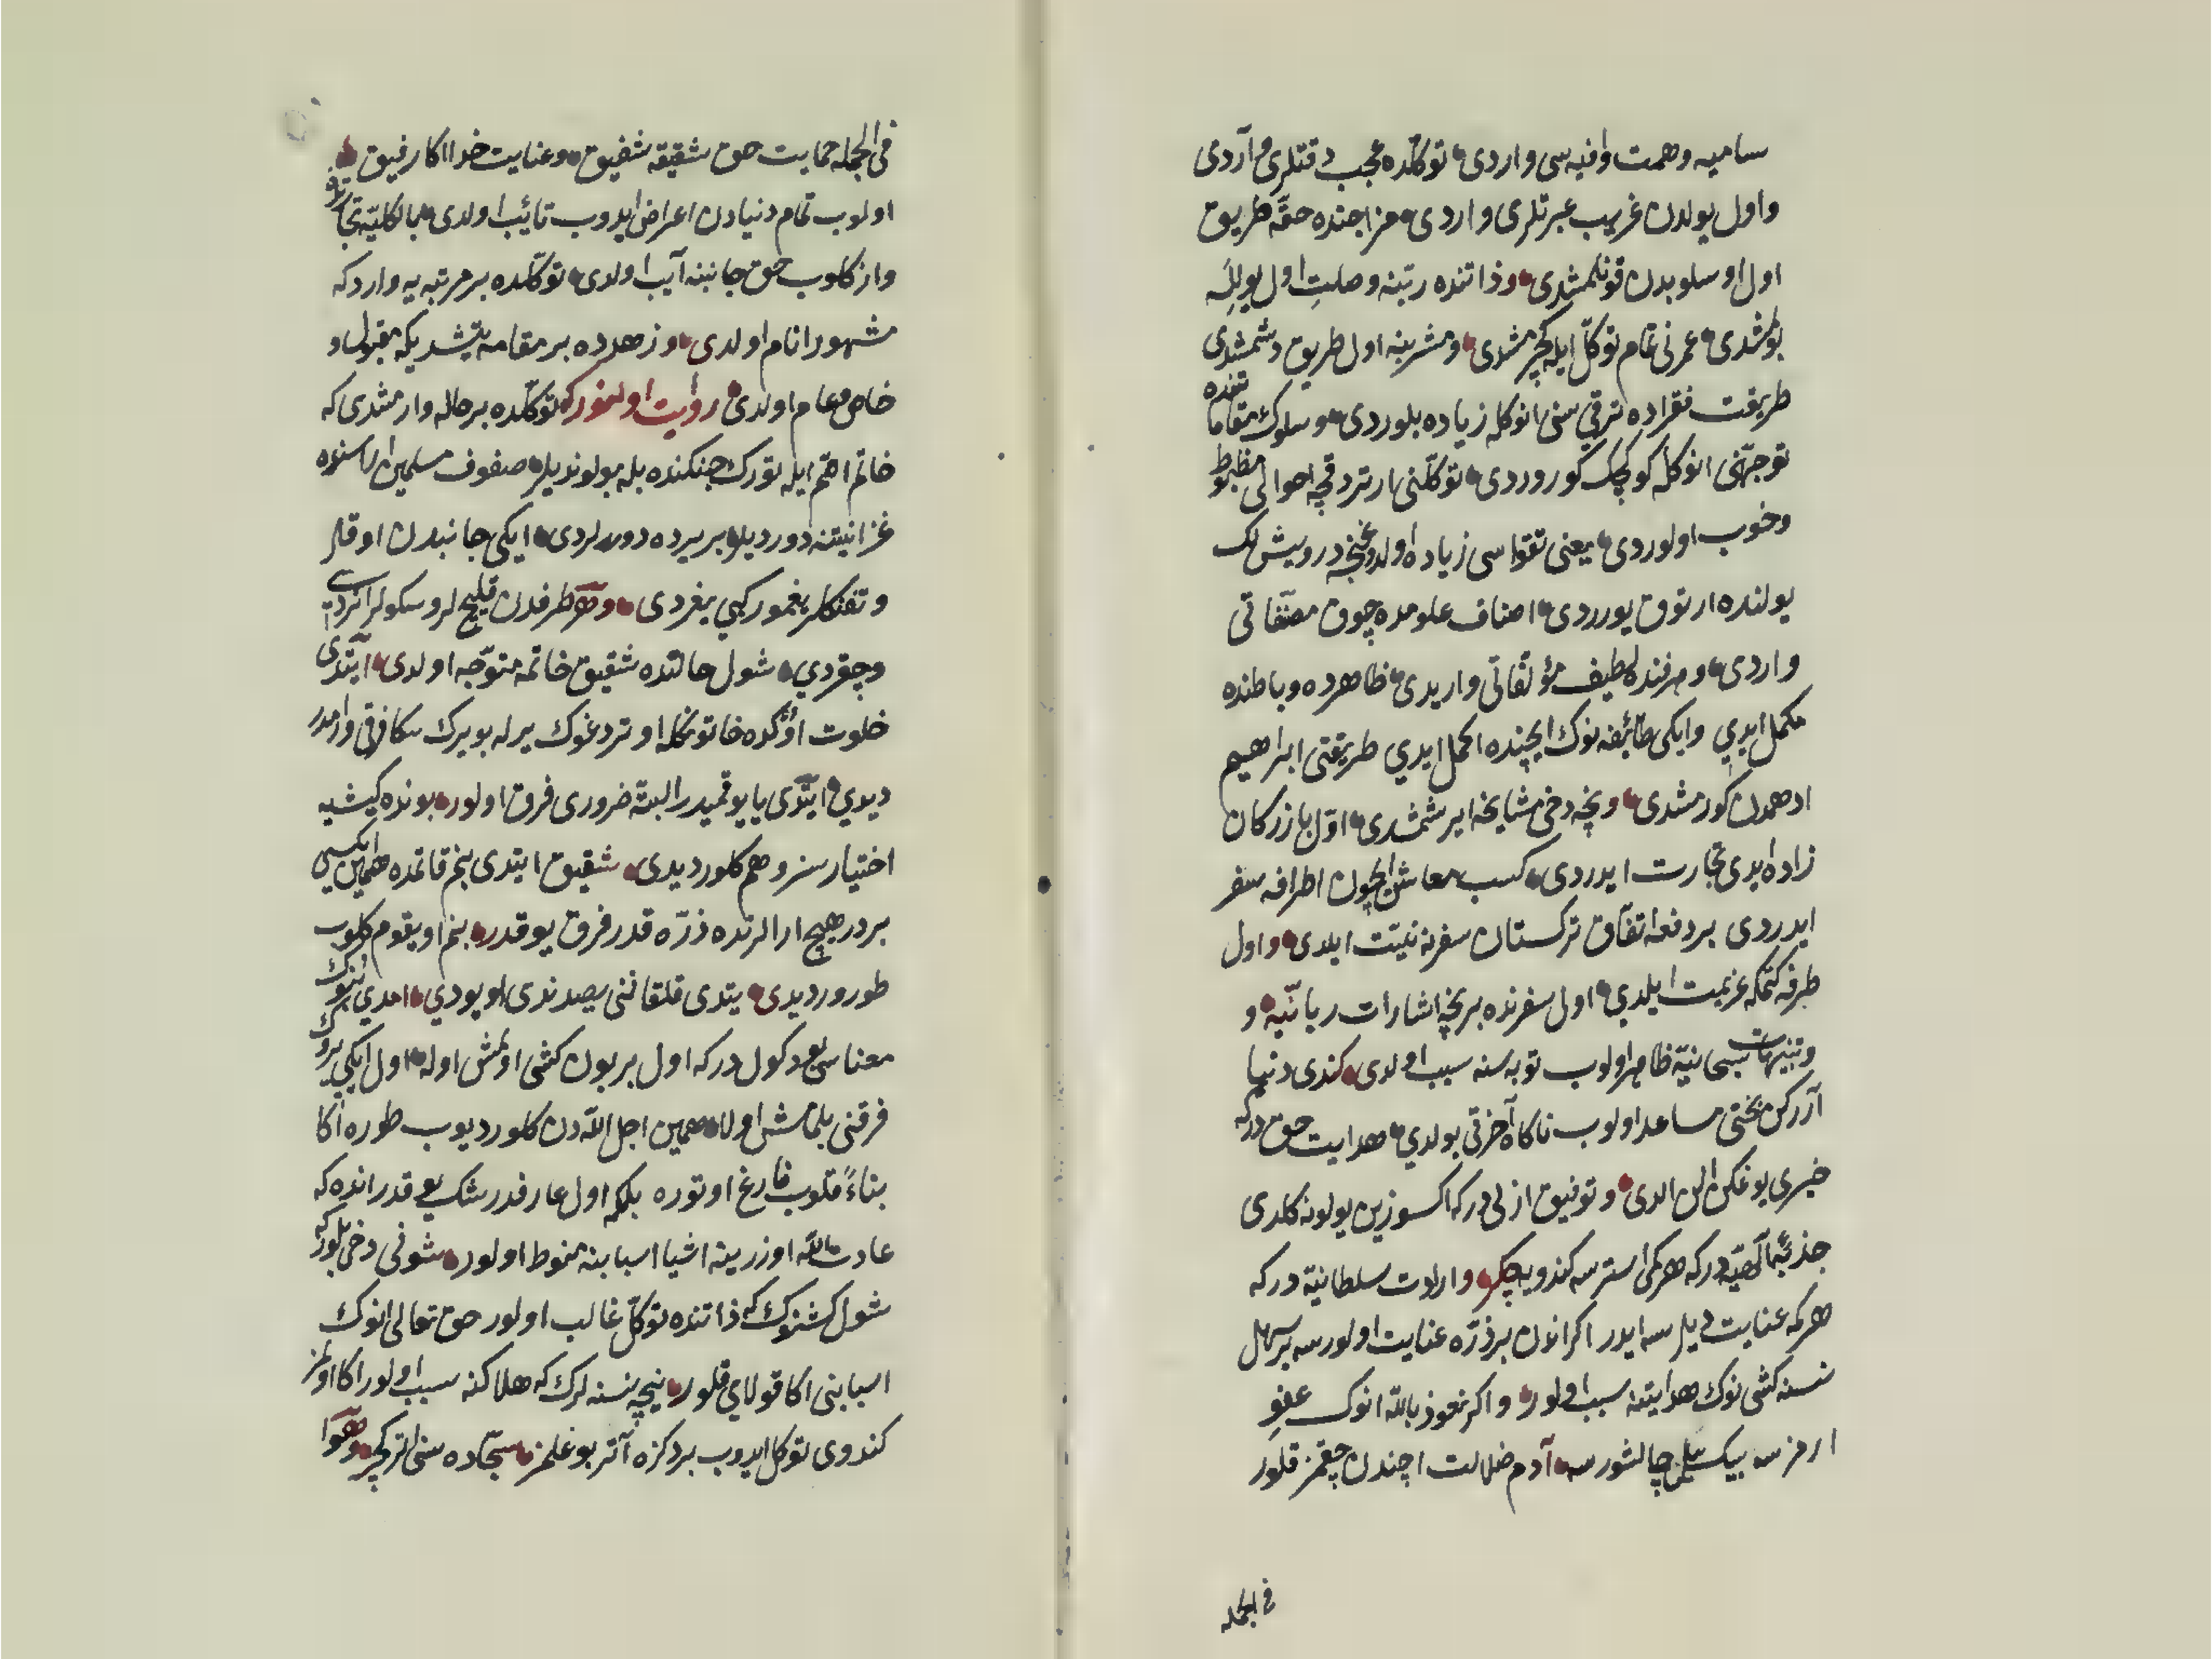 ساميه وهمت وافيه سی واردی توكلده عجب دقتلری وآردی
واول يولدن غريب عبرتلری واردی مزاجنده حقّه طريق
اول اوسلوبدن قونلمشدی وذاتنده رتبنه وصلتِ اول يوللَه
بولمشدی عمرنی تمام توكّل ايله كچرمشدی ومشربنه اول طريق دشمشدی
طريقت فقراده ترقی سنی انوكله زياده بلوردی وسلوك مقاماتنده
توجهّنی انوكله كوچك كوروردی توكلّنی ارتردقچه احوالی مظبوط
وخوب اولوردی يعنی تقواسی زياده اولدوغنجه درويش لك
يولنده ارتوق يورردی اصناف علومده چوق مصنّفاتی
واردی وهر فنده لطيف مؤلّفاتی واريدی ظاهرده وباطنده
مكمل ايدي وايكی طائفه نوك ايچنده اكمل ايدي طريقتی ابراهيم
ادهمدن كورمشدی ونچه دخی مشايخه ايرشمشدی اوّل بازركان
زاده ايدی تجارت ايدردی كسب معاش ايچون اطرافه سفر
ايدردی بر دفعه اتفاق تركستان سفرنه نيّت ايلدی واول
طرفه كتمكه عزيمت ايلدي اول سفرنده بر نچه اشارات ربانّيه و
وتنبيهات سبحانيّه ظاهر اولوب توبه سنه سبب اولدی كندی دنيا
آرركن بختی مساعد اولوب ناكاه آخرتی بولدي هدايت حق دركه
خيری يوغكن الن الدی وتوفيق ازلی دركه اكسوزين يولونه كلدی
جذبهٔ الٓهيّه دركه هر كمی استرسه كندويه چكر وارادت سلطانيّه دركه
هر كه عنايت ديلرسه ايدر اكر انون بر ذرّه عنايت اولورسه بر سهل
نسنه كشی نوك هدايتنه سبب اولور واكر نعوذ بالله انوك عفوِ
ارمزسه بيك ييل چالشورسه آدم ضلالت اچندن چقمز قلور
فی الجمله
فی الجمله حمايت حق شقيقه شفيق وعنايت خدا اكا رفيق
اولوب تمام دنيادن اعراض ايدوب تائب اولدی بالكليّه تجارتدن
واز كلوب حق جانبنه آيب اولدی توكّلده بر مرتبه يه وارد كه
مشهور انام اولدی وزهدده بر مقامه يتشديكه مقبول و
خاص وعام اولدی روايت اولنوركه توكّلده بر حاله وارمشدی كه
خاتم اصّم ايله تورك جنكنده بله بولونديلر صفوف مسلمين اراسنده
غزا نيتنه دورديلر بر يرده دورلردی ايكی جانبدن اوقلر
وتفنكلر يغمور كبي يغردی وهر طرفدن قليچ لر وسكولر انردی
وچقردي شول حالتده شقيق خاتمه متوّجه اولدی ايتّدی
خلوت اوٌكده خاتونكله اوتردغوك يرله بو يرك سكا فرقی وارمدر
ديدي ايتّدی يا يوقميدر البتّه ضروری فرق اولور بونده كيشيه
اختيارسز وهم كلور ديدی شقيق ايتدی بنم قاتمده همين ايكيسی
بردر هيچ ارالرنده ذرّه قدر فرق يوقدر بنم اويقوم كلوب
طورور ديدی يتدی قلقاننی يصدندی اويودي امدي بونوك
معناسی بو دكول دركه اول بر بون كشی اولمش اوله اول ايكی يروك
فرقنی بلمامش اولا همين اجل الله دن كلور ديوب طوره اكا
بناءً قلوب فارغ اوتوره بلكه اول عارفدر شك يوقدر انده كه
عادت الله اوزرينه اشيا اسبابنه منوط اولور شونی دخی بلوركه
شول كشنوك كه ذاتنده توكّل غالب اولور حق تعالی انوك
اسبابنی اكا قولاي قلور نيچه نسنه لرك كه هلاكنه سبب اولور اكا اولمز
كندوی توكل ايدوب بر دكزه آتر بوغلمز سجّاده سنی اتر كچر وهوا